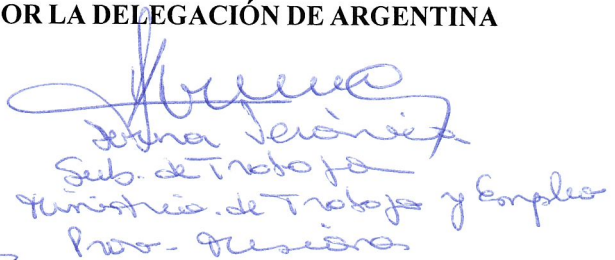 OR LA DELEGACIÓN DE ARGENTINA
Verónica
Sub. de Trabajo
Ministerio. de Trabajo y Empleo
Prov- Misiones